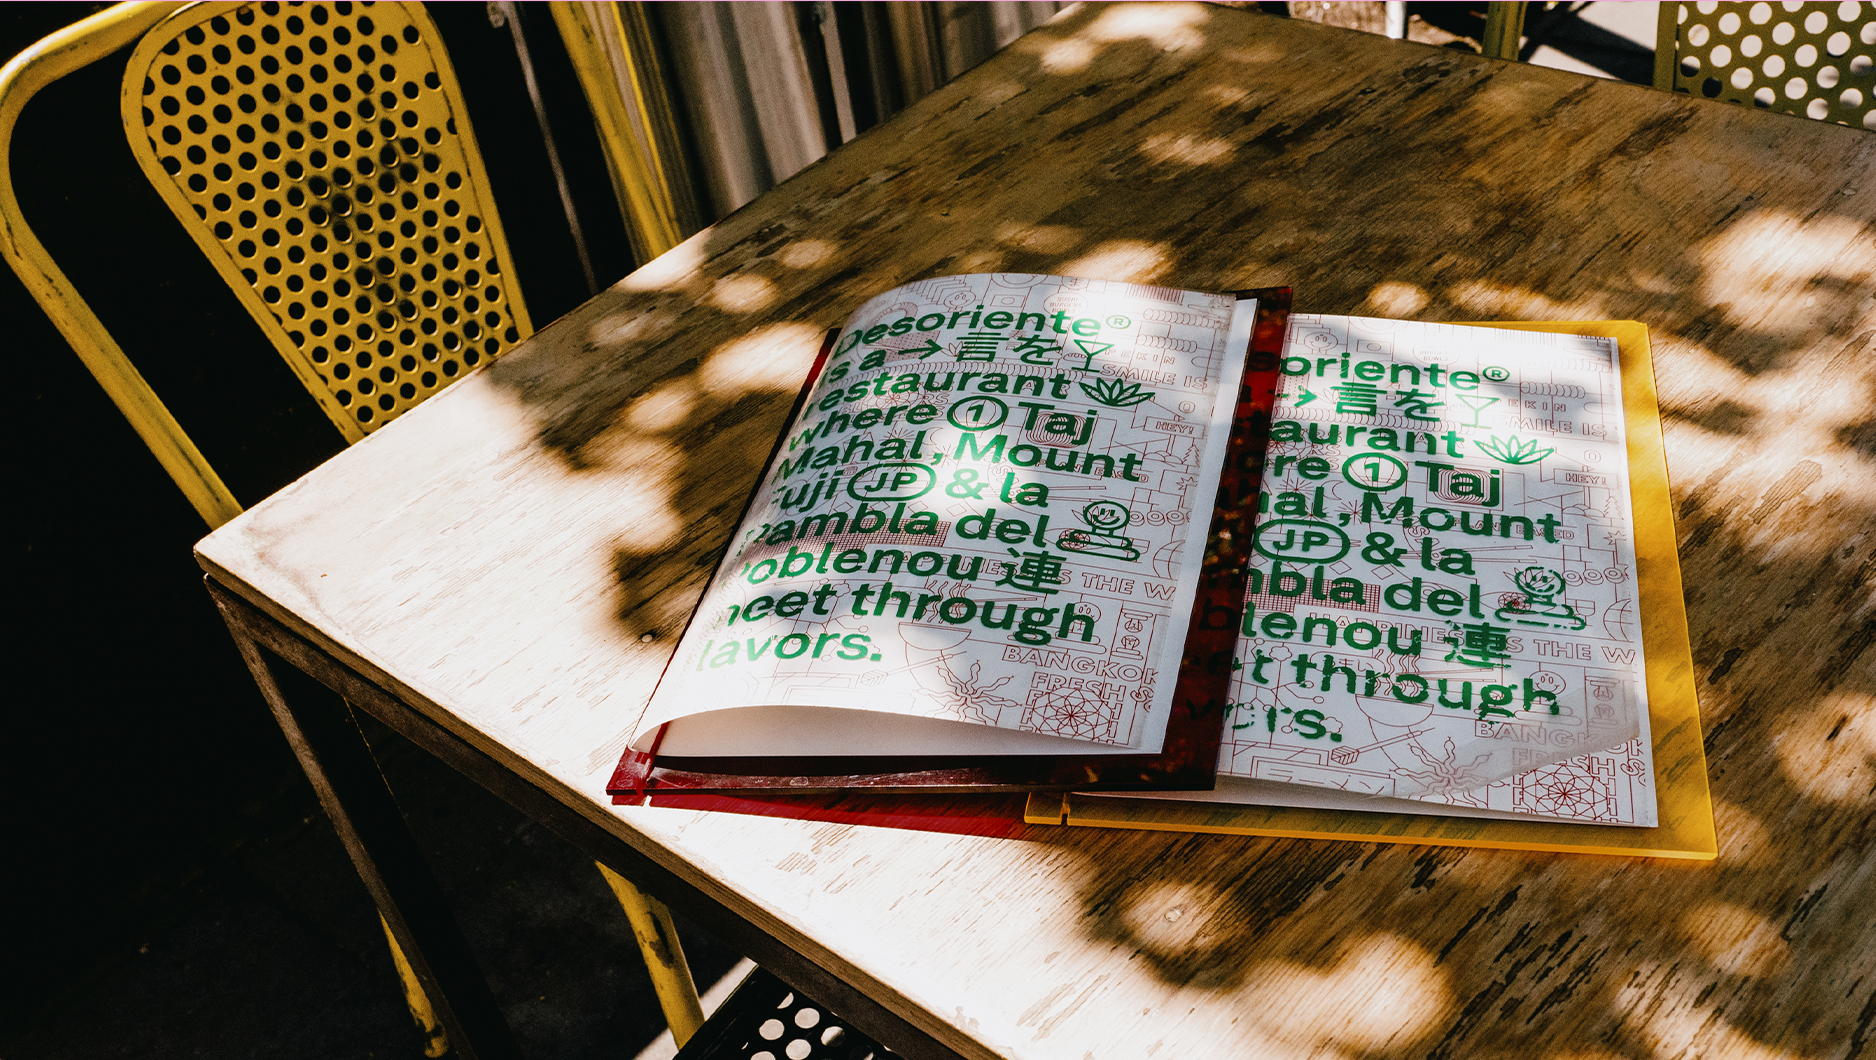 Desoriente®
is a → 言を
restaurant
where 1 Taj
Mahal, Mount
Fuji JP & la
Rambla del
Poblenou 連
meet through
flavors.
PEKIN
SMILE IS
HEY!
THE W
BANGKOK
FRESH S
soriente®
→ 言を
taurant
ere 1 Taj
hal, Mount
JP & la
mbla del
blenou 連
et through
vors.
EKIN
MILE IS
HEY!
BASED
HAPPINESS IS THE W
BANGKOK
FRESH S